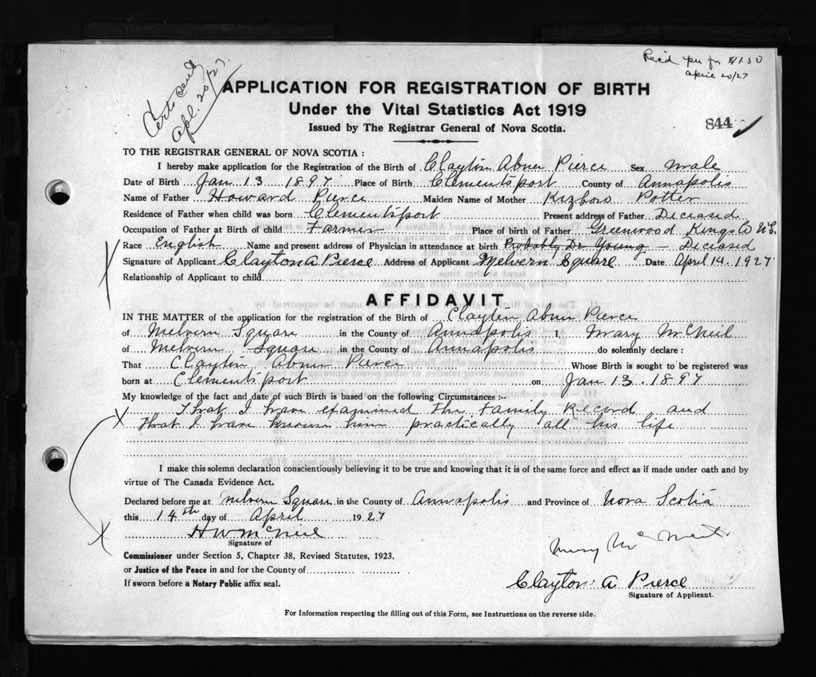 Rec'd fee for $1.50
April 20/27
Certs sent
Apl. 20/27.
APPLICATION FOR REGISTRATION OF BIRTH
Under the Vital Statistics Act 1919
Issued by The Registrar General of Nova Scotia.
844
TO THE REGISTRAR GENERAL OF NOVA SCOTIA :
I hereby make application for the Registration of the Birth of Clayton Abner Pierce Sex male
Date of Birth Jan 13 1897 Place of Birth Clementsport County of Annapolis
Name of Father Howard Pierce Maiden Name of Mother Potter
Residence of Father when child was born Clementsport Present address of Father Deceased
Occupation of Father at Birth of child Farmer Place of birth of Father Greenwood Kings Co N.S.
Race English Name and present address of Physician in attendance at birth Probably Dr Young – Deceased
Signature of Applicant Clayton A Pierce Address of Applicant Melvern Square Date April 14. 1927
Relationship of Applicant to child
AFFIDAVIT
IN THE MATTER of the application for the registration of the Birth of Clayton Abner Pierce
of Melvern Square in the County of Annapolis I, Mary McNeil
of Melvern Square in the County of Annapolis do solemnly declare :
That Clayton Abner Pierce Whose Birth is sought to be registered was
born at Clementsport on Jan 13. 1897
My knowledge of the fact and date of such Birth is based on the following Circumstances :–
That I have examined the Family Record and
that I have known him practically all his life
I make this solemn declaration conscientiously believing it to be true and knowing that it is of the same force and effect as if made under oath and by
virtue of The Canada Evidence Act.
Declared before me at Melvern Square in the County of Annapolis and Province of Nova Scotia
this 14th day of April 1927
H W McNeil
Signature of
Mary McNeil
Commissioner under Section 5, Chapter 38, Revised Statutes, 1923.
or Justice of the Peace in and for the County of
Clayton A Pierce
Signature of Applicant.
If sworn before a Notary Public affix seal.
For Information respecting the filling out of this Form, see Instructions on the reverse side.